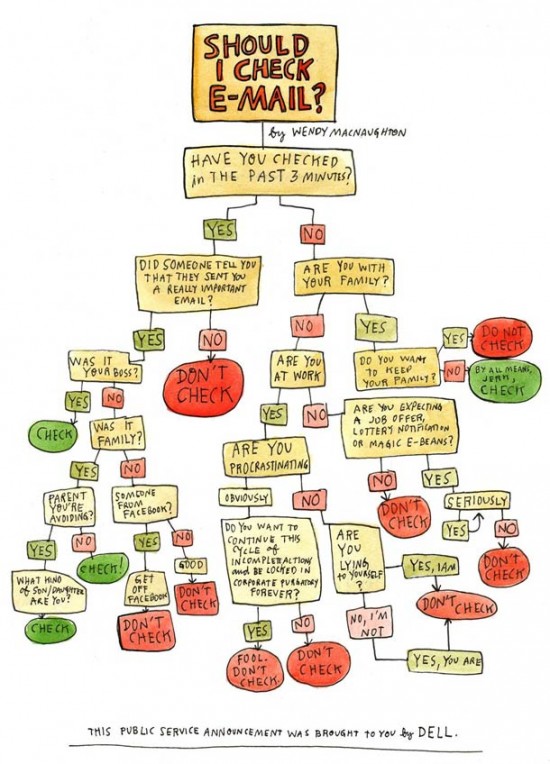 SHOULD
I CHECK
E-MAIL?
by WENDY MACNAUGHTON
HAVE YOU CHECKED
in THE PAST 3 MINUTES?
YES
NO
DID SOMEONE TELL YOU
THAT THEY SENT YOU
A REALLY IMPORTANT
EMAIL?
ARE YOU WITH
YOUR FAMILY?
YES
NO
NO
YES
WAS IT
YOUR BOSS?
DON'T
CHECK
ARE YOU
AT WORK
DO YOU WANT
TO KEEP
YOUR FAMILY?
YES
DO NOT
CHECK
NO
BY ALL MEANS,
JERK,
CHECK
YES
NO
CHECK
WAS IT
FAMILY?
YES
NO
ARE YOU EXPECTING
A JOB OFFER,
LOTTERY NOTIFICATION
OR MAGIC E-BEANS?
YES
NO
ARE YOU
PROCRASTINATING
NO
YES
PARENT
YOU'RE
AVOIDING?
SOMEONE
FROM
FACEBOOK?
OBVIOUSLY
NO
DON'T
CHECK
SERIOUSLY
YES
NO
DON'T
CHECK
YES
NO
YES
NO
DO YOU WANT TO
CONTINUE THIS
CYCLE of
INCOMPLETE ACTIONS
and BE LOCKED IN
CORPORATE PURGATORY
FOREVER?
ARE
YOU
LYING
to YOURSELF
?
CHECK!
GOOD
WHAT KIND
of SON/DAUGHTER
ARE YOU?
GET
OFF
FACEBOOK
DON'T
CHECK
YES, I AM
DON'T CHECK
CHECK
DON'T
CHECK
YES
NO
NO, I'M
NOT
FOOL.
DON'T
CHECK
DON'T
CHECK
YES, YOU ARE
THIS PUBLIC SERVICE ANNOUNCEMENT WAS BROUGHT TO YOU by DELL.